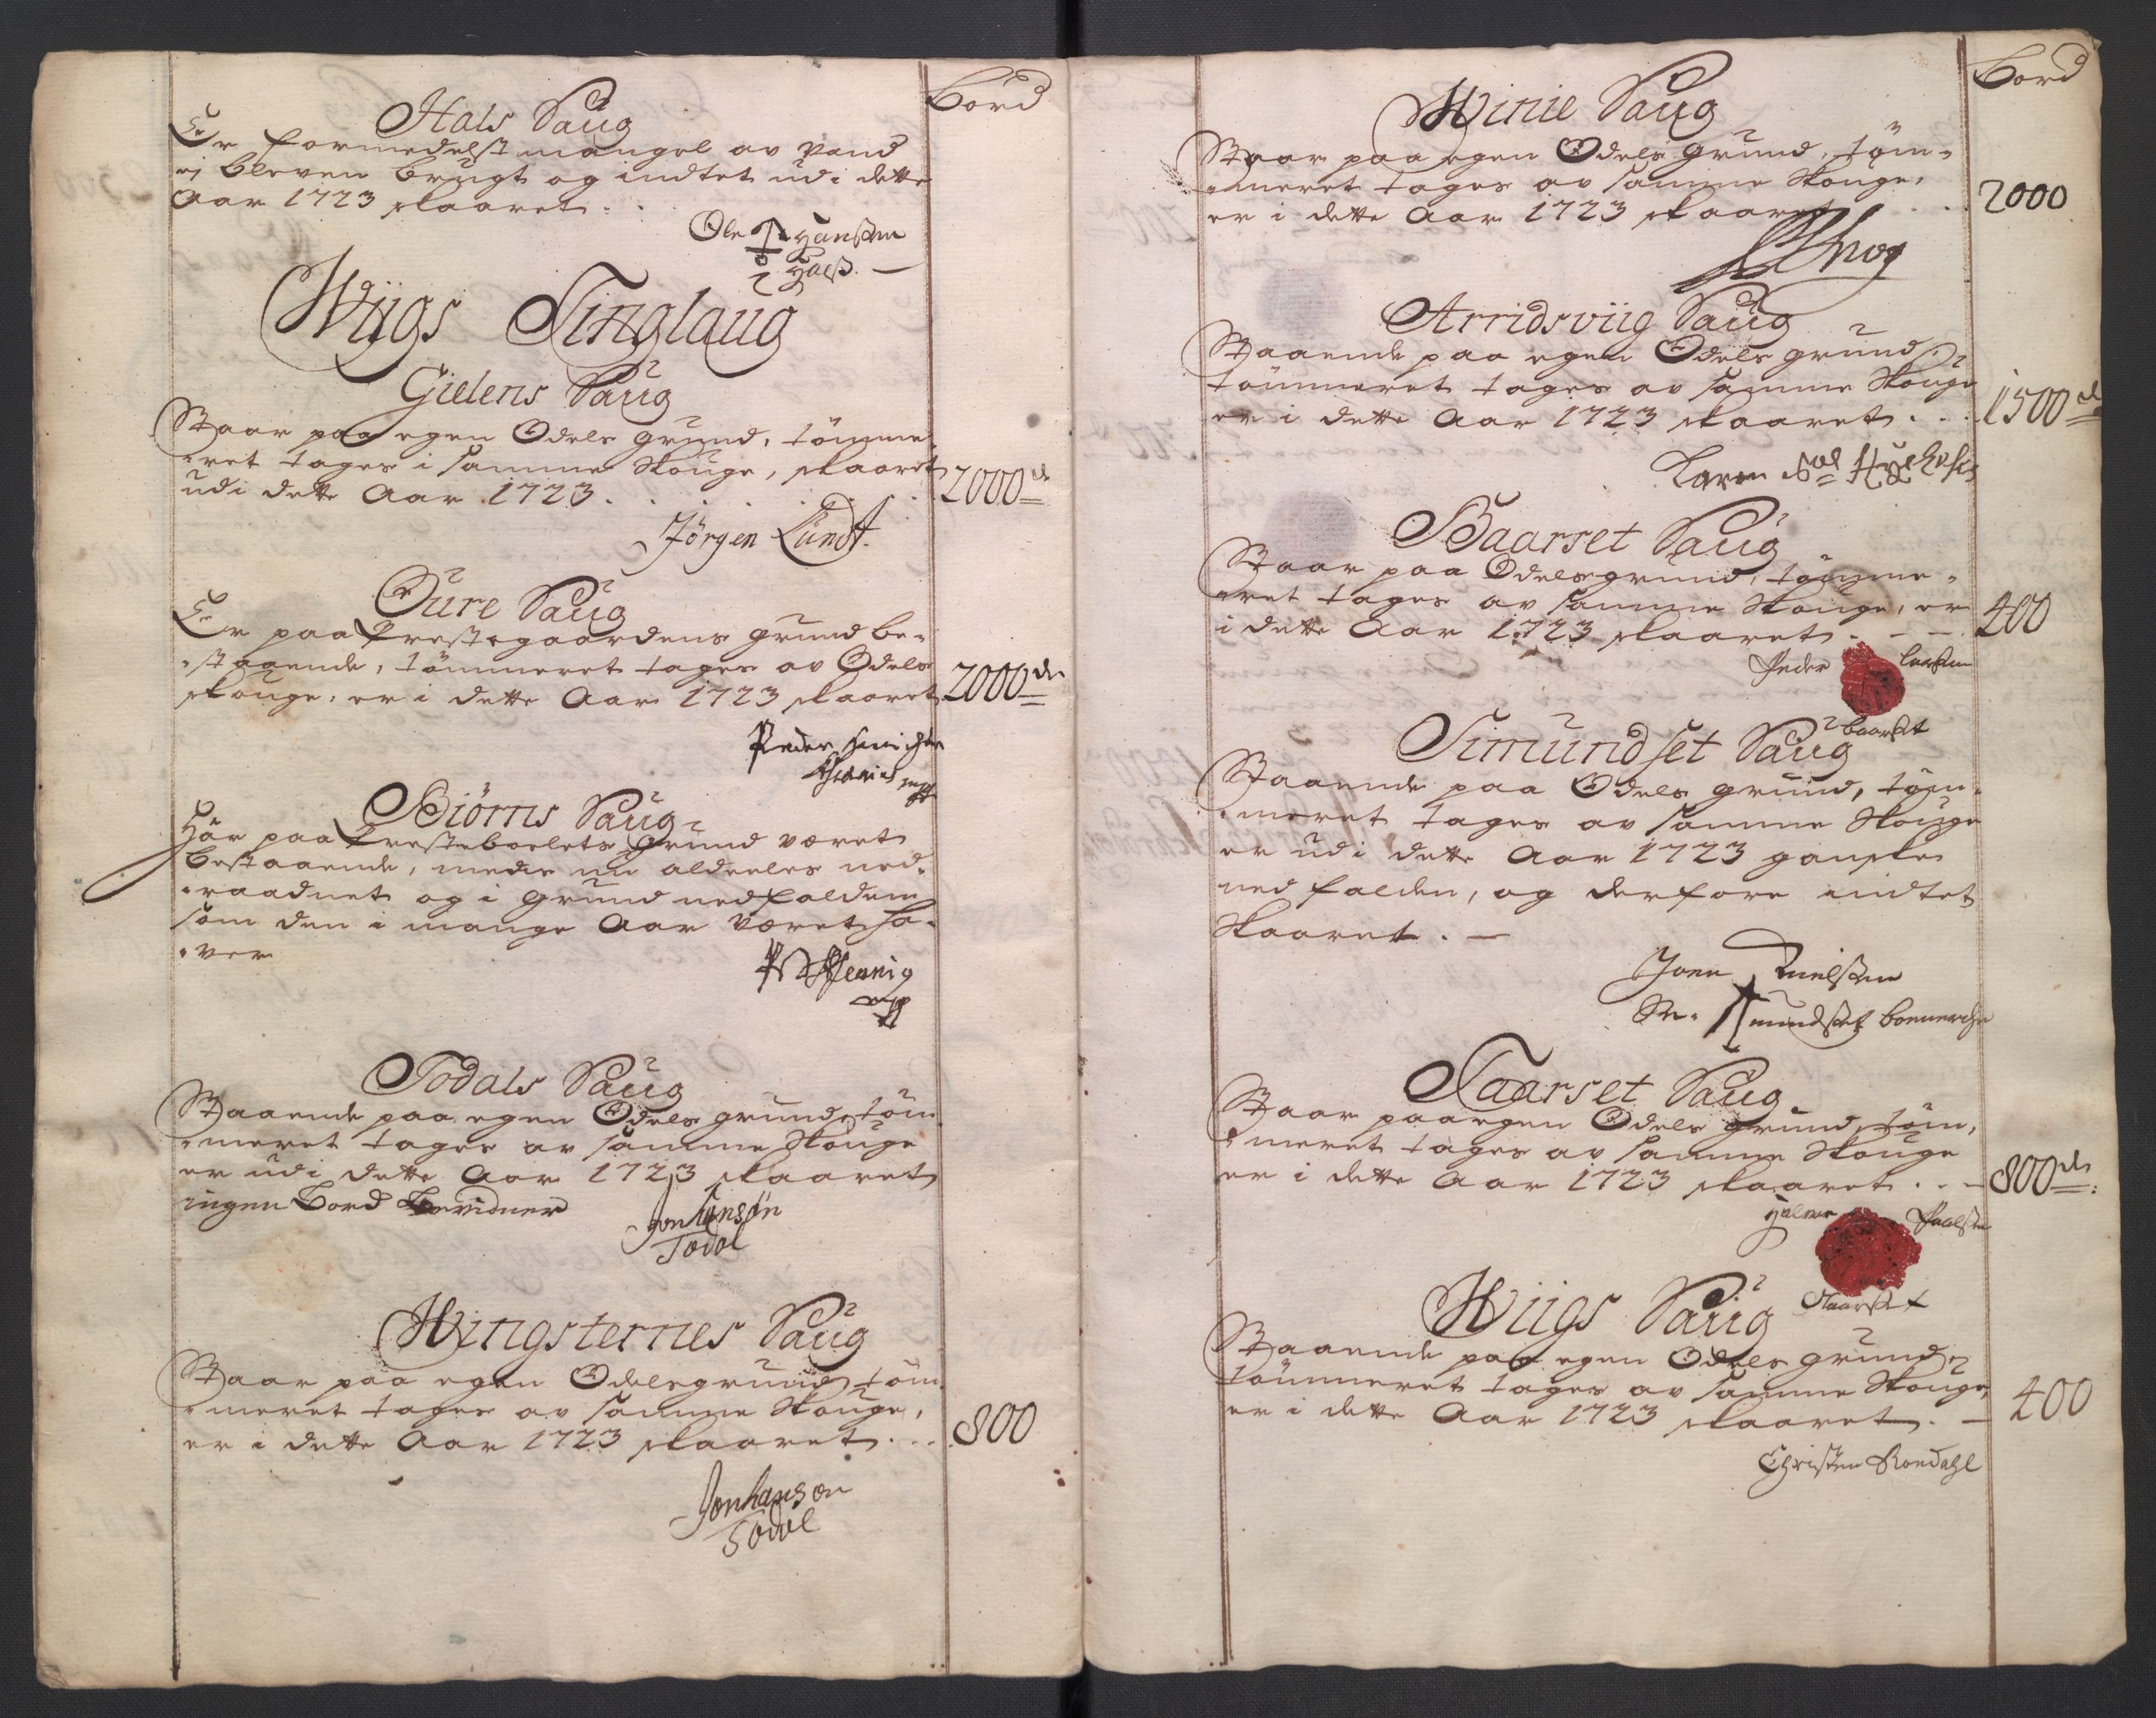 Bord
Hals Saug
Er formedelst mangel av Vand
ej bleven brugt og indtet udi dette
Aar 1723 skaaret.
Ole Hansen
Halß.
Wiigs Tinglaug
Gielens Saug
Staar paa egen Odels grund, tömme-
-ret tages i samme Skouge, skaaret
udi dette Aar 1723. 2000 de
Jörgen Lund.
Öure Saug
Er paa Prestegaardens grund be-
-staaende, tömmeret tages av Odels
skouge, er i dette Aar 1723 skaaret 2000 de
Peder
Biörns Saug
Har paa Presteboelets Grund været
bestaaende, mens nu aldeeles ned-
-raadnet og i Grund nedfalden
som den i mange Aar været ha-
-ver
Todals Saug
Staaende paa egen Odels grund, töm-
-meret tages av samme Skouge
er udi dette Aar 1723 skaaret
ingen Bord
Jon hansön
Todal
Wingsternes Saug
Staar paa egen Odelsgrund, töm-
-meret tages av samme Skouge,
er i dette Aar 1723 skaaret. 800
Jon hanson
Todal
Bord
Winie Saug
Staar paa egen Odels Grund, töm-
-meret tages av samme Skouge,
er i dette Aar 1723 skaaret 2000
Arridsviig Saug
Staaende paa egen Odels grund,
tömmeret tages av samme Skouge
er i dette Aar 1723 skaaret. 1500 de
Karen
Baarset Saug
Staar paa Odelsgrund, tömme-
-ret tages av samme Skouge, er
i dette Aar 1723 skaaret. 400
Peder Larsen
Baarset
Simundset Saug
Staaende paa Odels grund, töm-
-meret tages av samme Skouge
er udi dette Aar 1723 ganske
ned falden, og derfore indtet
Skaaret.
Joen Nielsen
Si-mundset boemerche
Taarset Saug
Staar paa egen Odels grund, töm-
-meret tages av samme Skouge
er i dette Aar 1723 skaaret. 800 de
Halvor Paalsen
Taarset
Wiigs Saug
Staaende paa egen Odels grund,
tömmeret tages av samme Skouge,
er i dette Aar 1723 skaaret. 400
Christen Roedahl